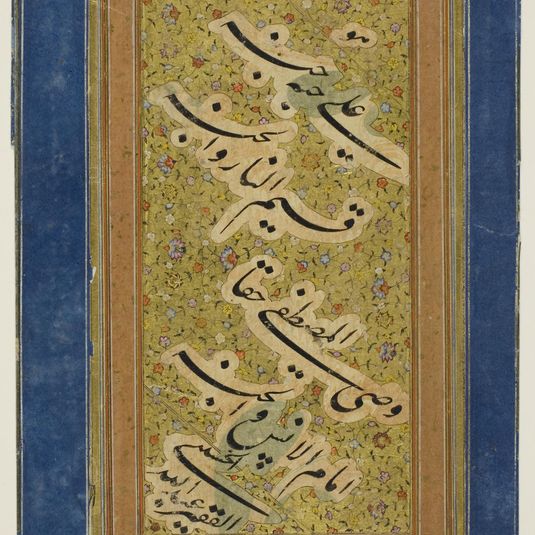 هو
علی حبه جنة
قسیم النار و الجنة
وصی المصطفی حقا
امام الانس و الجنة
الفقیر
الحسنی